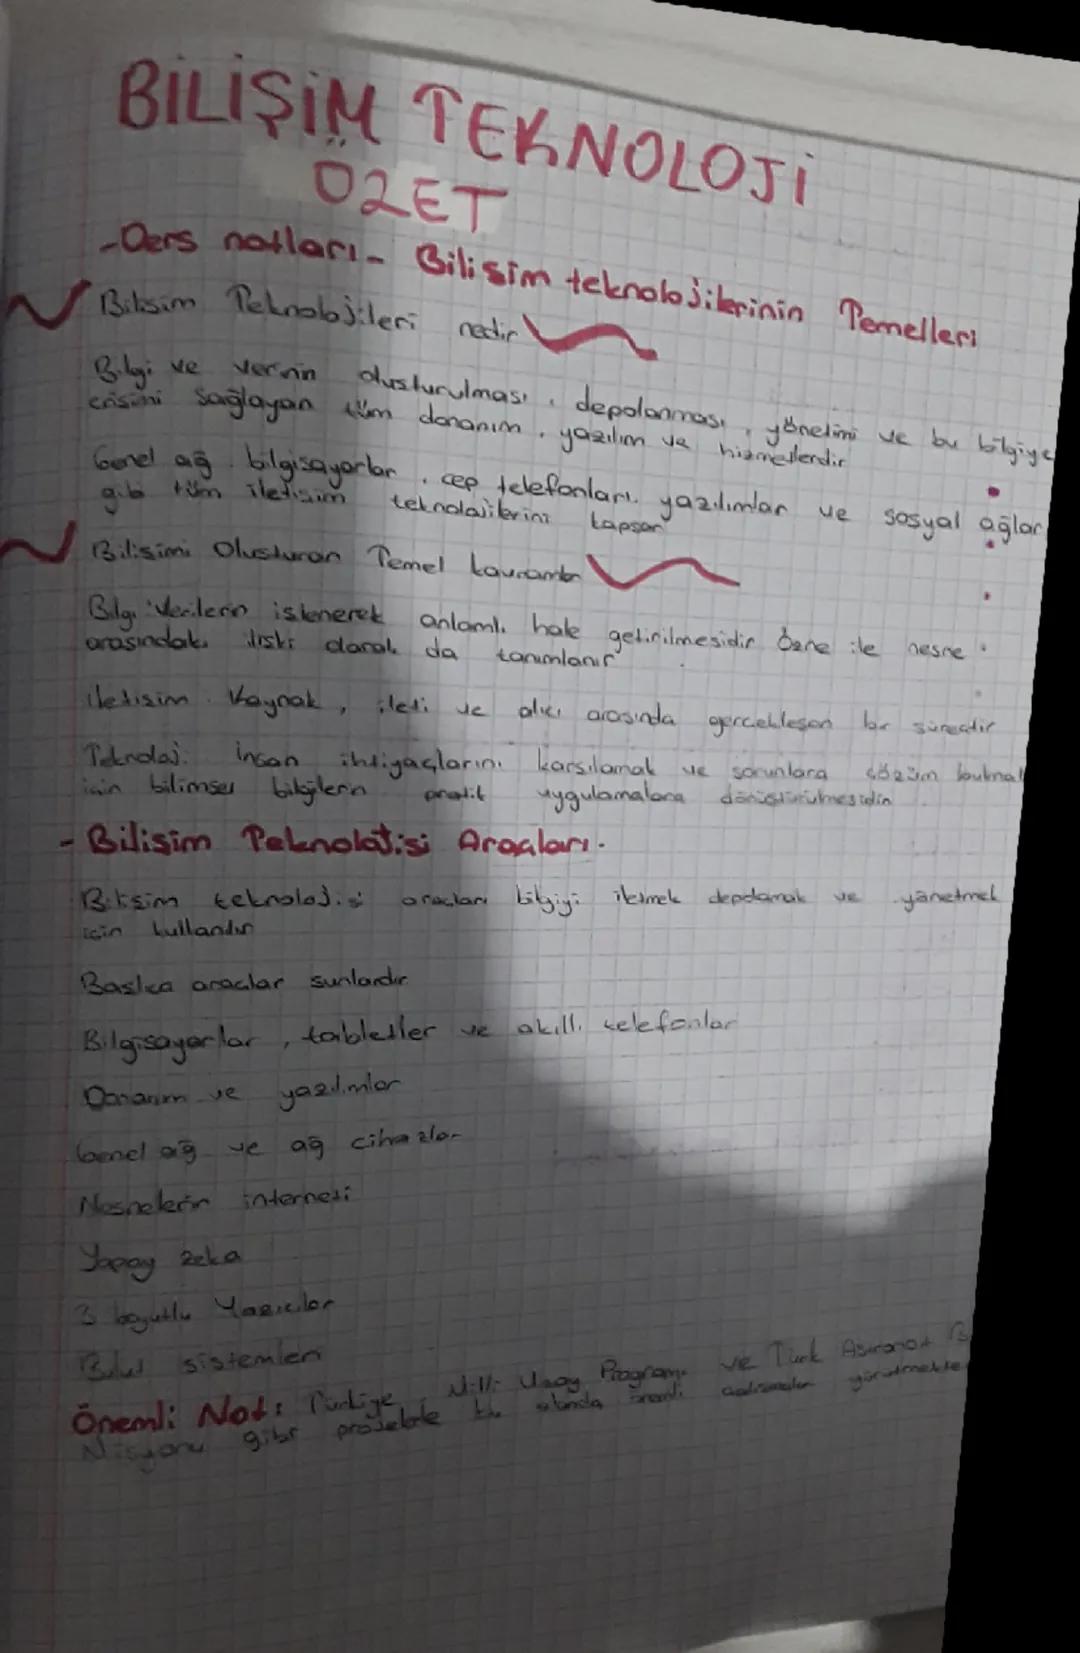 BİLİŞİM TEKNOLOJİ
ÖZET
-Ders notları- Bilisim teknolojilerinin Temelleri
Bilisim Teknolojileri nedir
Bilgi ve verinin olusturulması, depolanması, yönetimi ve bu bilgiye
erisimi sağlayan tüm donanım, yazılım ve hizmetlerdir
Genel ağ, bilgisayarlar, cep telefonları, yazılımlar ve sosyal ağlar
gibi tüm iletisim teknolojilerini kapsar
Bilisimi Olusturan Temel kavramlar
Bilgi: Verilerin islenerek anlamlı hale getirilmesidir Özne ile nesne
arasındaki iliski olarak da tanımlanır
iletisim Kaynak, ileti ve alıcı arasında gerceklesen bir sürectir
Teknoloji: insan ihtiyaçlarını karsılamak ve sorunlara çözüm bulmak
icin bilimsel bilgilerin pratik uygulamalara dönüstürülmesidir
- Bilisim Teknolojisi Araçları.
Bilisim teknolojisi aracları bilgiyi iletmek depolamak ve yönetmek
icin kullanılır
Baslıca araclar sunlardır
Bilgisayarlar, tabletler ve akıllı telefonlar
Donanım ve yazılımlar
Genel ağ ve ağ cihazlar
Nesnelerin interneti
Yapay zeka
3 boyutlu Yazıcılar
Bulut sistemleri
Önemli Not: Türkiye, Milli Uzay Programı ve Türk Astronot B
Misyonu gibi projelerle bu alanda önemli calısmalar yürütmekte